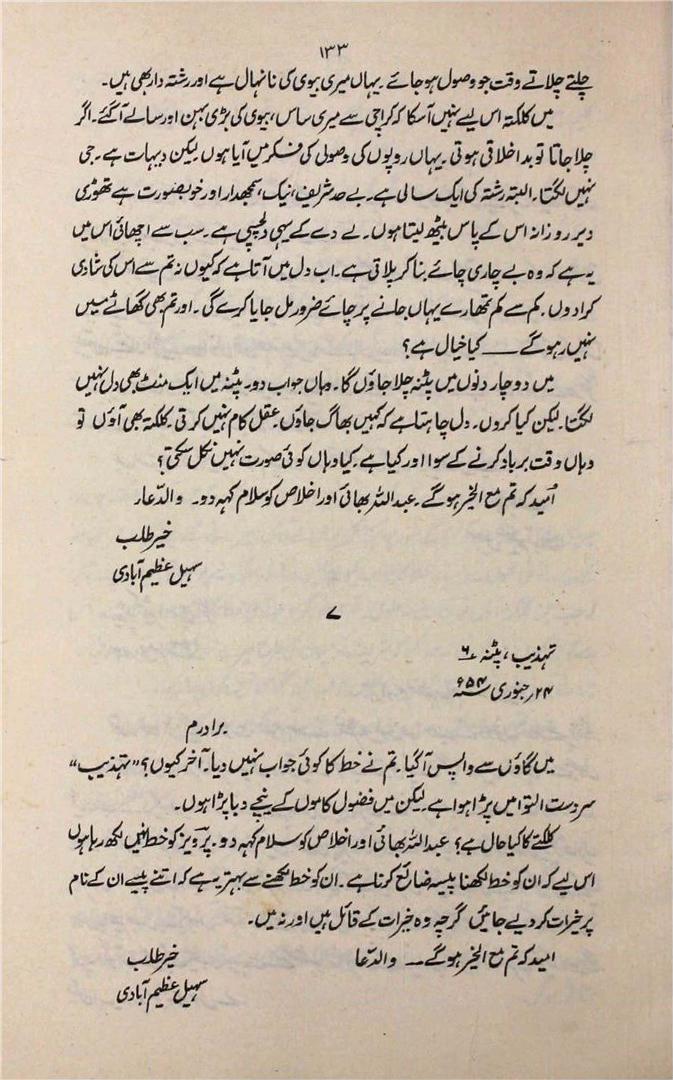 ۱۳۳
چلتے چلاتے وقت جو وصول ہو جائے۔ یہاں میری بیوی کی نانہال ہے اور رشتہ دار بھی ہیں۔
میں کلکتہ اس لیے نہیں آسکا کہ کراچی سے میری ساس، بیوی کی بڑی بہن اور سالے آگئے۔ اگر
چلا جاتا تو بد اخلاقی ہوتی۔ یہاں روپوں کی وصولی کی فکر میں آیا ہوں لیکن دیہات ہے۔ جی
نہیں لگتا۔ البتہ رشتہ کی ایک سالی ہے۔ بے حد شریف، نیک، سمجھدار اور خوبصورت ہے تھوڑی
دیر روزانہ اس کے پاس بیٹھ لیتا ہوں۔ لے دے کے یہی دلچسپی ہے۔ سب سے اچھائی اس میں
یہ ہے کہ وہ بے چاری چائے بنا کر پلاتی ہے۔ اب دل میں آتا ہے کہ کیوں نہ تم سے اس کی شادی
کرادوں۔ کم سے کم تمھارے یہاں جانے پر چائے ضرور مل جایا کرے گی۔ اور تم بھی گھاٹے میں
نہیں رہو گے —— کیا خیال ہے؟
میں دو چار دنوں میں پٹنہ چلا جاؤں گا۔ وہاں جواب دو۔ پٹنہ میں ایک منٹ بھی دل نہیں
لگتا۔ لیکن کیا کروں۔ دل چاہتا ہے کہ کہیں بھاگ جاؤں۔ عقل کام نہیں کرتی۔ کلکتہ بھی آؤں تو
وہاں وقت برباد کرنے کے سوا اور کیا ہے۔ کیا وہاں کوئی صورت نہیں نکل سکتی؟
اُمید کہ تم مع الخیر ہو گے۔ عبداللہ بھائی اور اخلاص کو سلام کہہ دو۔ والدعار
خیر طلب
سہیل عظیم آبادی
۷
تہذیب، پٹنہ ۶
۲۴؍ جنوری ۵۴ء
برادرم
میں گاؤں سے واپس آگیا۔ تم نے خط کا کوئی جواب نہیں دیا۔ آخر کیوں؟ ”تہذیب“
سردست التوا میں پڑا ہوا ہے۔ لیکن میں فضول کاموں کے نیچے دبا پڑا ہوں۔
کلکتے کا کیا حال ہے؟ عبداللہ بھائی اور اخلاص کو سلام کہہ دو۔ پرویز کو خط نہیں لکھ رہا ہوں
اس لیے کہ ان کو خط لکھنا پیسہ ضائع کرنا ہے۔ ان کو خط لکھنے سے بہتر یہ ہے کہ اتنے پیسے ان کے نام
پر خیرات کر دیے جائیں گرچہ وہ خیرات کے قائل ہیں اور نہ میں۔
امید کہ تم مع الخیر ہو گے — والدعا
خیر طلب
سہیل عظیم آبادی